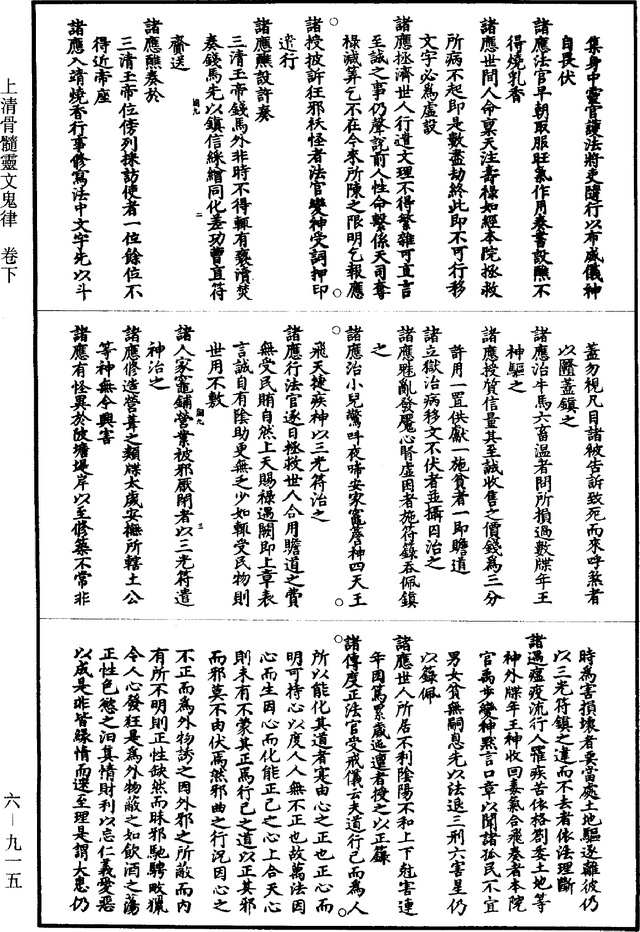 集身中靈官護法將吏隨行以布威儀神
自畏伏
諸應法官早朝取服旺氣作用奏書設醮不
得燒乳香
諸應世間人命稟天注壽祿如經本院拯救
所病不起即是數盡劫終此即不可行移
文字必為虛設
諸應拯濟世人行遣文理不得繁雜可直言
至誠之事仍聲說前人性命繫係天司奪
祿減筭乞不在今來所陳之限明乞報應
諸授披訴狂邪袄怪者法官變神受詞押印
迄行
諸應醮設許奏
三清玉帝錢馬外非時不得輒有褻瀆焚
奏錢馬先以鎮信綵繒同化差功曹直符
賫送
諸應醮奏於
三清玉帝位傍列採訪使者一位餘位不
得近帝座
諸應入靖燒香行事修寫法中文字先以斗
蓋勿視凡目諸被告訴致死而來呼煞者
以䰢蓋鎮之
諸應治牛馬六畜溫者問所損過數牒年王
神驅之
諸應授賫信量其至誠收售之價錢為三分
許用一置供獻一施貧者一即贍道
諸立獄治病移文不伏者並攝囚治之
諸應魅亂發魘心腎虛困者施符籙吞佩鎮
之
諸應治小兒驚呌夜啼安家竈簷神四天王
飛天捷疾神以三光符治之
諸應行法官逐日拯救世人合用贍道之費
無受民賄自然上天賜祿遇闕即上章表
言誠自有陰助更無乏少如輒受民物則
世用不敷
諸人家竈鋪營業被邪厭閉者以三光符遣
神治之
諸應修造營葺之類牒太歲安撫所轄土公
等神無令興害
諸應有怪異於陂塘堤岸以至修築不常非
時為害損壞者要當處土地驅逐離彼仍
以三光符鎮之違而不去者依法理斷
諸遇瘟疫流行人罹疾苦依格劄委土地等
神外牒年王神收回毒氣合飛奏者本院
官禹步變神默言口章以聞諸孤民不宜
男女貧無嗣息先以法退三刑六害星仍
以籙佩
諸應世人所居不利陰陽不和上下尅害連
年因篤累歲迍邅者授之以正籙
諸傳度正法官受戒儀云夫道行己而為人
所以能化其道者寔由心之正也正心而
明可持心以度人人無不正也故萬法因
心而生因心而化能正己之心上合天心
則未有不蒙其正焉行己之道以正其邪
而邪莫不由伏焉然邪曲之行況因心之
不正而為外物誘之因外邪之所敵而內
有所不明則正性缺然而昧邪馳騁畋獵
令人心發狂是為外物敵之如飲酒之蕩
正性色慾之汩真情財利以忘仁義愛惡
以成是非皆緣情而還至理是謂大患仍
上清骨髓靈文鬼律 卷下
六—九一五